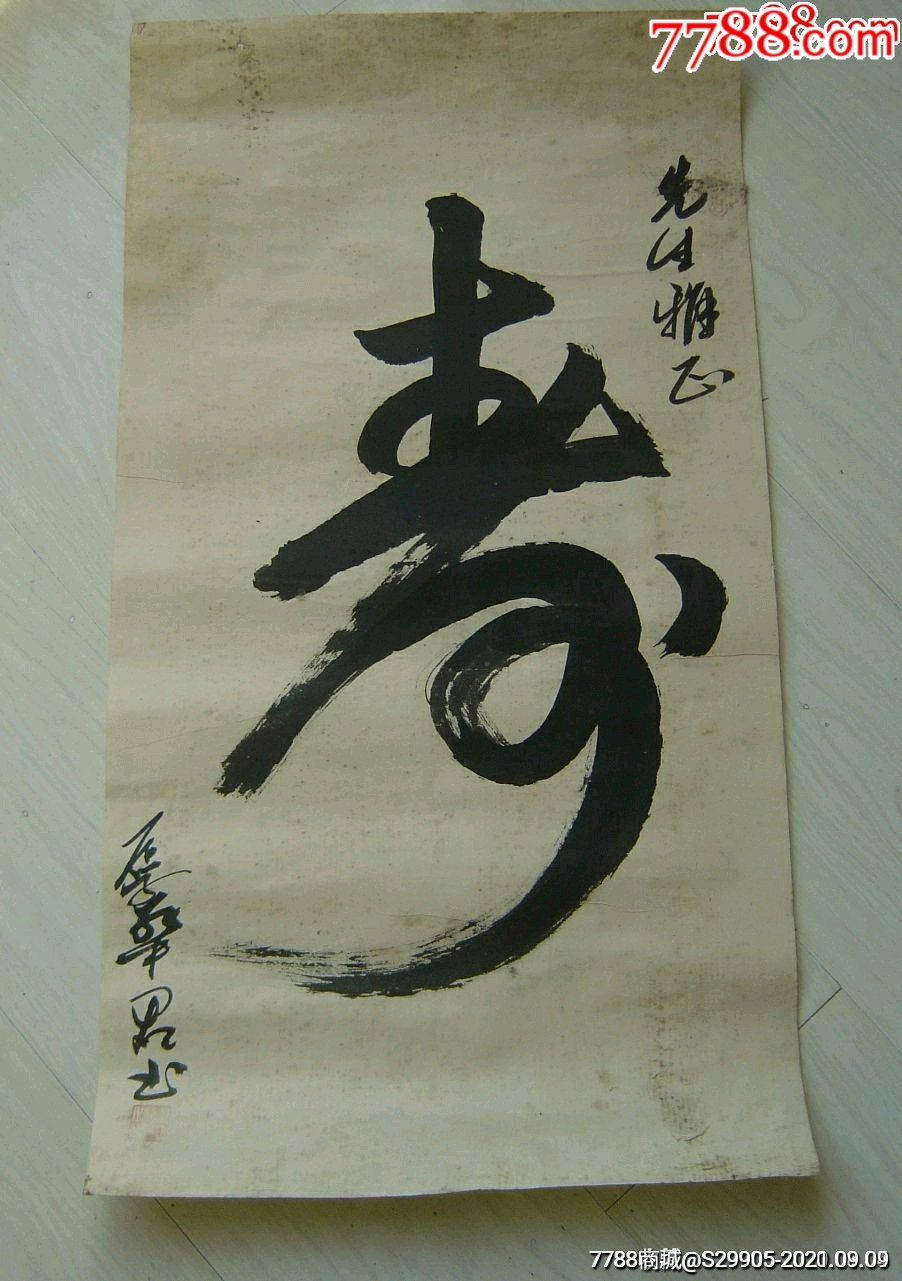 7788.com
先生雅正
寿
书
7788商城@S29905-2021.09.09